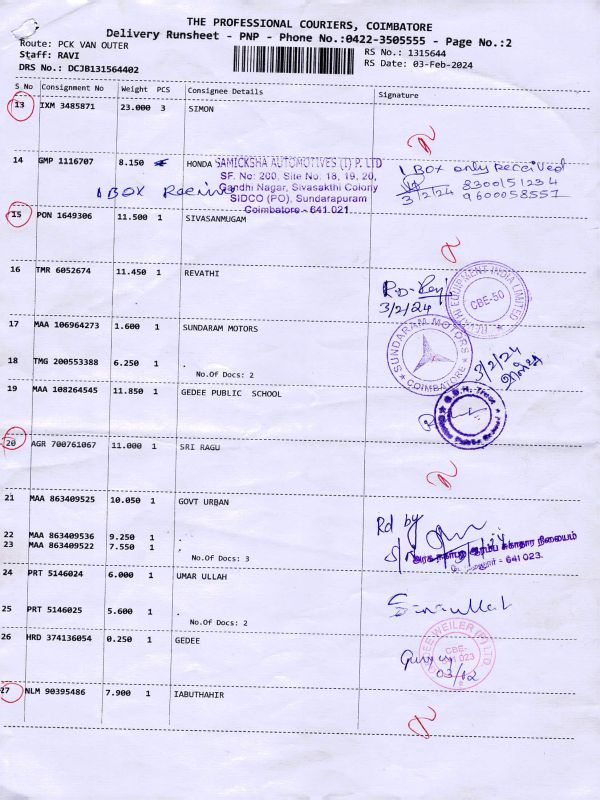 THE PROFESSIONAL COURIERS, COIMBATORE
Delivery Runsheet - PNP - Phone No.:0422-3505555 - Page No.:2
Route: PCK VAN OUTER
Staff: RAVI
RS No.: 1315644
DRS No.: DCJB131564402
RS Date: 03-Feb-2024
S No Consignment No Weight PCS Consignee Details Signature
13 IXM 3485871 23.000 3 SIMON
14 GMP 1116707 8.150 HONDA
SAMICKSHA AUTOMOTIVES (I) P. LTD
SF. No: 200, Site No. 18, 19, 20,
Gandhi Nagar, Sivasakthi Colony
SIDCO (PO), Sundarapuram
Coimbatore - 641 021
1 BOX
1 BOX only Received
8300151234
3/2/24 9600058557
15 PON 1649306 11.500 1 SIVASANMUGAM
16 TMR 6052674 11.450 1 REVATHI
3/2/24
EQUIPMENT INDIA LIMITED
CBE-50
17 MAA 106964273 1.600 1 SUNDARAM MOTORS
SUNDARAM MOTORS
COIMBATORE
3/2/24
18 TMG 200553388 6.250 1 .
No.Of Docs: 2
19 MAA 108264545 11.850 1 GEDEE PUBLIC SCHOOL
20 AGR 700761067 11.000 1 SRI RAGU
21 MAA 863409525 10.050 1 GOVT URBAN
Rd by
22 MAA 863409536 9.250 1 .
23 MAA 863409522 7.550 1 .
No.Of Docs: 3
நிலையம்
641 023.
24 PRT 5146024 6.000 1 UMAR ULLAH
25 PRT 5146025 5.600 1 .
No.Of Docs: 2
26 HRD 374136054 0.250 1 GEDEE
WEILER (P) LTD
CBE-
641 023
03/02
27 NLM 90395486 7.900 1 IABUTHAHIR